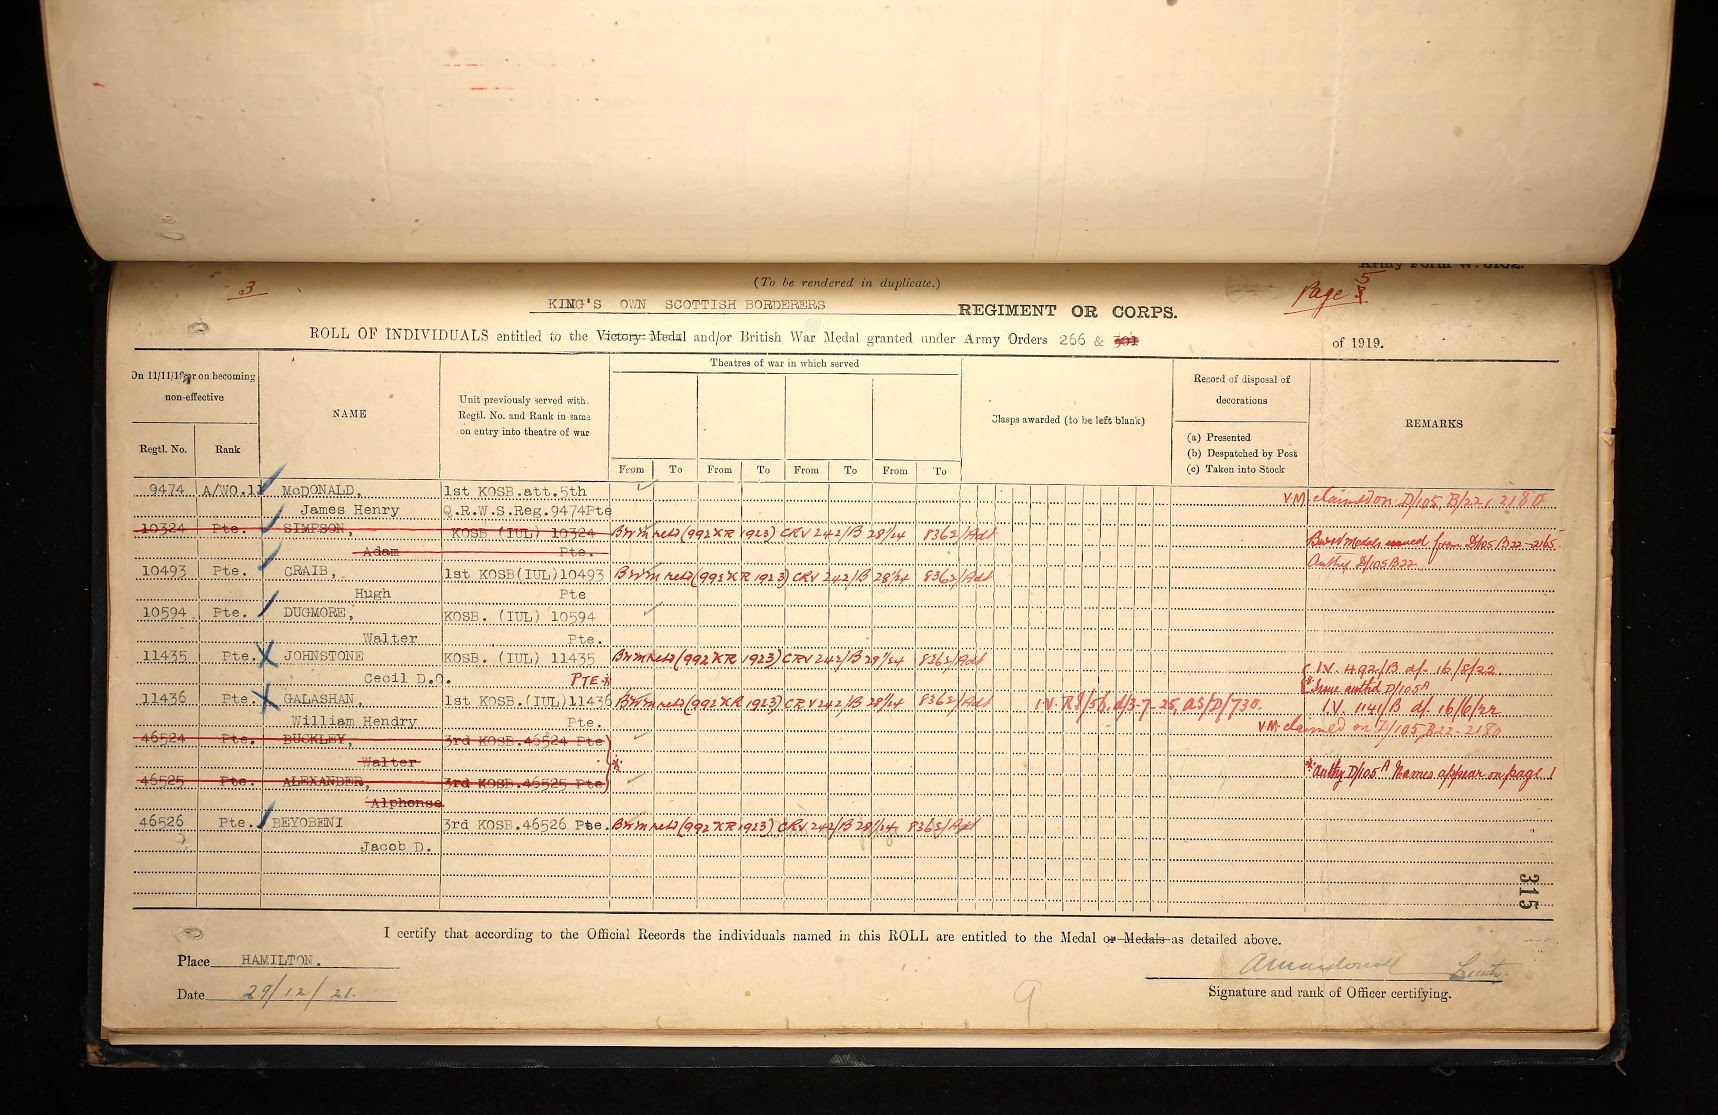 Army Form W. 5102.
(To be rendered in duplicate.)
3
Page 5
KING'S OWN SCOTTISH BORDERERS REGIMENT OR CORPS.
ROLL OF INDIVIDUALS entitled to the Victory Medal and/or British War Medal granted under Army Orders 266 & 301 of 1919.
On 11/11/18 or on becoming non-effective
Regtl. No. Rank
NAME
Unit previously served with. Regtl. No. and Rank in same on entry into theatre of war
Theatres of war in which served
From To From To From To From To
Clasps awarded (to be left blank)
Record of disposal of decorations
(a) Presented
(b) Despatched by Post
(c) Taken into Stock
REMARKS
9474 A/WO.11 McDONALD, 1st KOSB.att.5th V.M. claimed on D/105 B/22, 2180
James Henry Q.R.W.S.Reg.9474Pte
10324 Pte. SIMPSON, KOSB (IUL) 10324 BWM retd (992 KR 1923) CRV 242/B 28/24 8362/Adt
Adam Pte. BWar Medals issued from D/105 B22-2165
10493 Pte. CRAIB, 1st KOSB(IUL)10493 BWM retd (992 KR 1923) CRV 242/B 28/24 8362/Adt Authy D/105 B22
Hugh Pte
10594 Pte. DUGMORE, KOSB. (IUL) 10594
Walter Pte.
11435 Pte. JOHNSTONE KOSB. (IUL) 11435 BWM retd (992 KR 1923) CRV 242/B 28/24 8362/Adt I.V. 492/B df- 16/8/22
Cecil D.O. PTE * * Issue authd D/105A
11436 Pte. GALASHAN, 1st KOSB.(IUL)11436 BWM retd (992 KR 1923) CRV 242/B 28/24 8362/Adt I.V. R9/56, d/3-7-25, AS/D/730. I.V. 1141/B df 16/6/22
William Hendry Pte. V.M. claimed on D/105, B22-2180
46524 Pte. BUCKLEY, 3rd KOSB.46524 Pte
Walter *
46525 Pte. ALEXANDER, 3rd KOSB.46525 Pte * Authy D/105A Names appear on page 1
Alphonse
46526 Pte. BEYOBENI 3rd KOSB.46526 Pte. BWM retd (992 KR 1923) CRV 242/B 28/24 8362/Adt
Jacob D.
315
I certify that according to the Official Records the individuals named in this ROLL are entitled to the Medal or Medals as detailed above.
Place HAMILTON.
Lieut.
Date 29/12/21.
Signature and rank of Officer certifying.
9